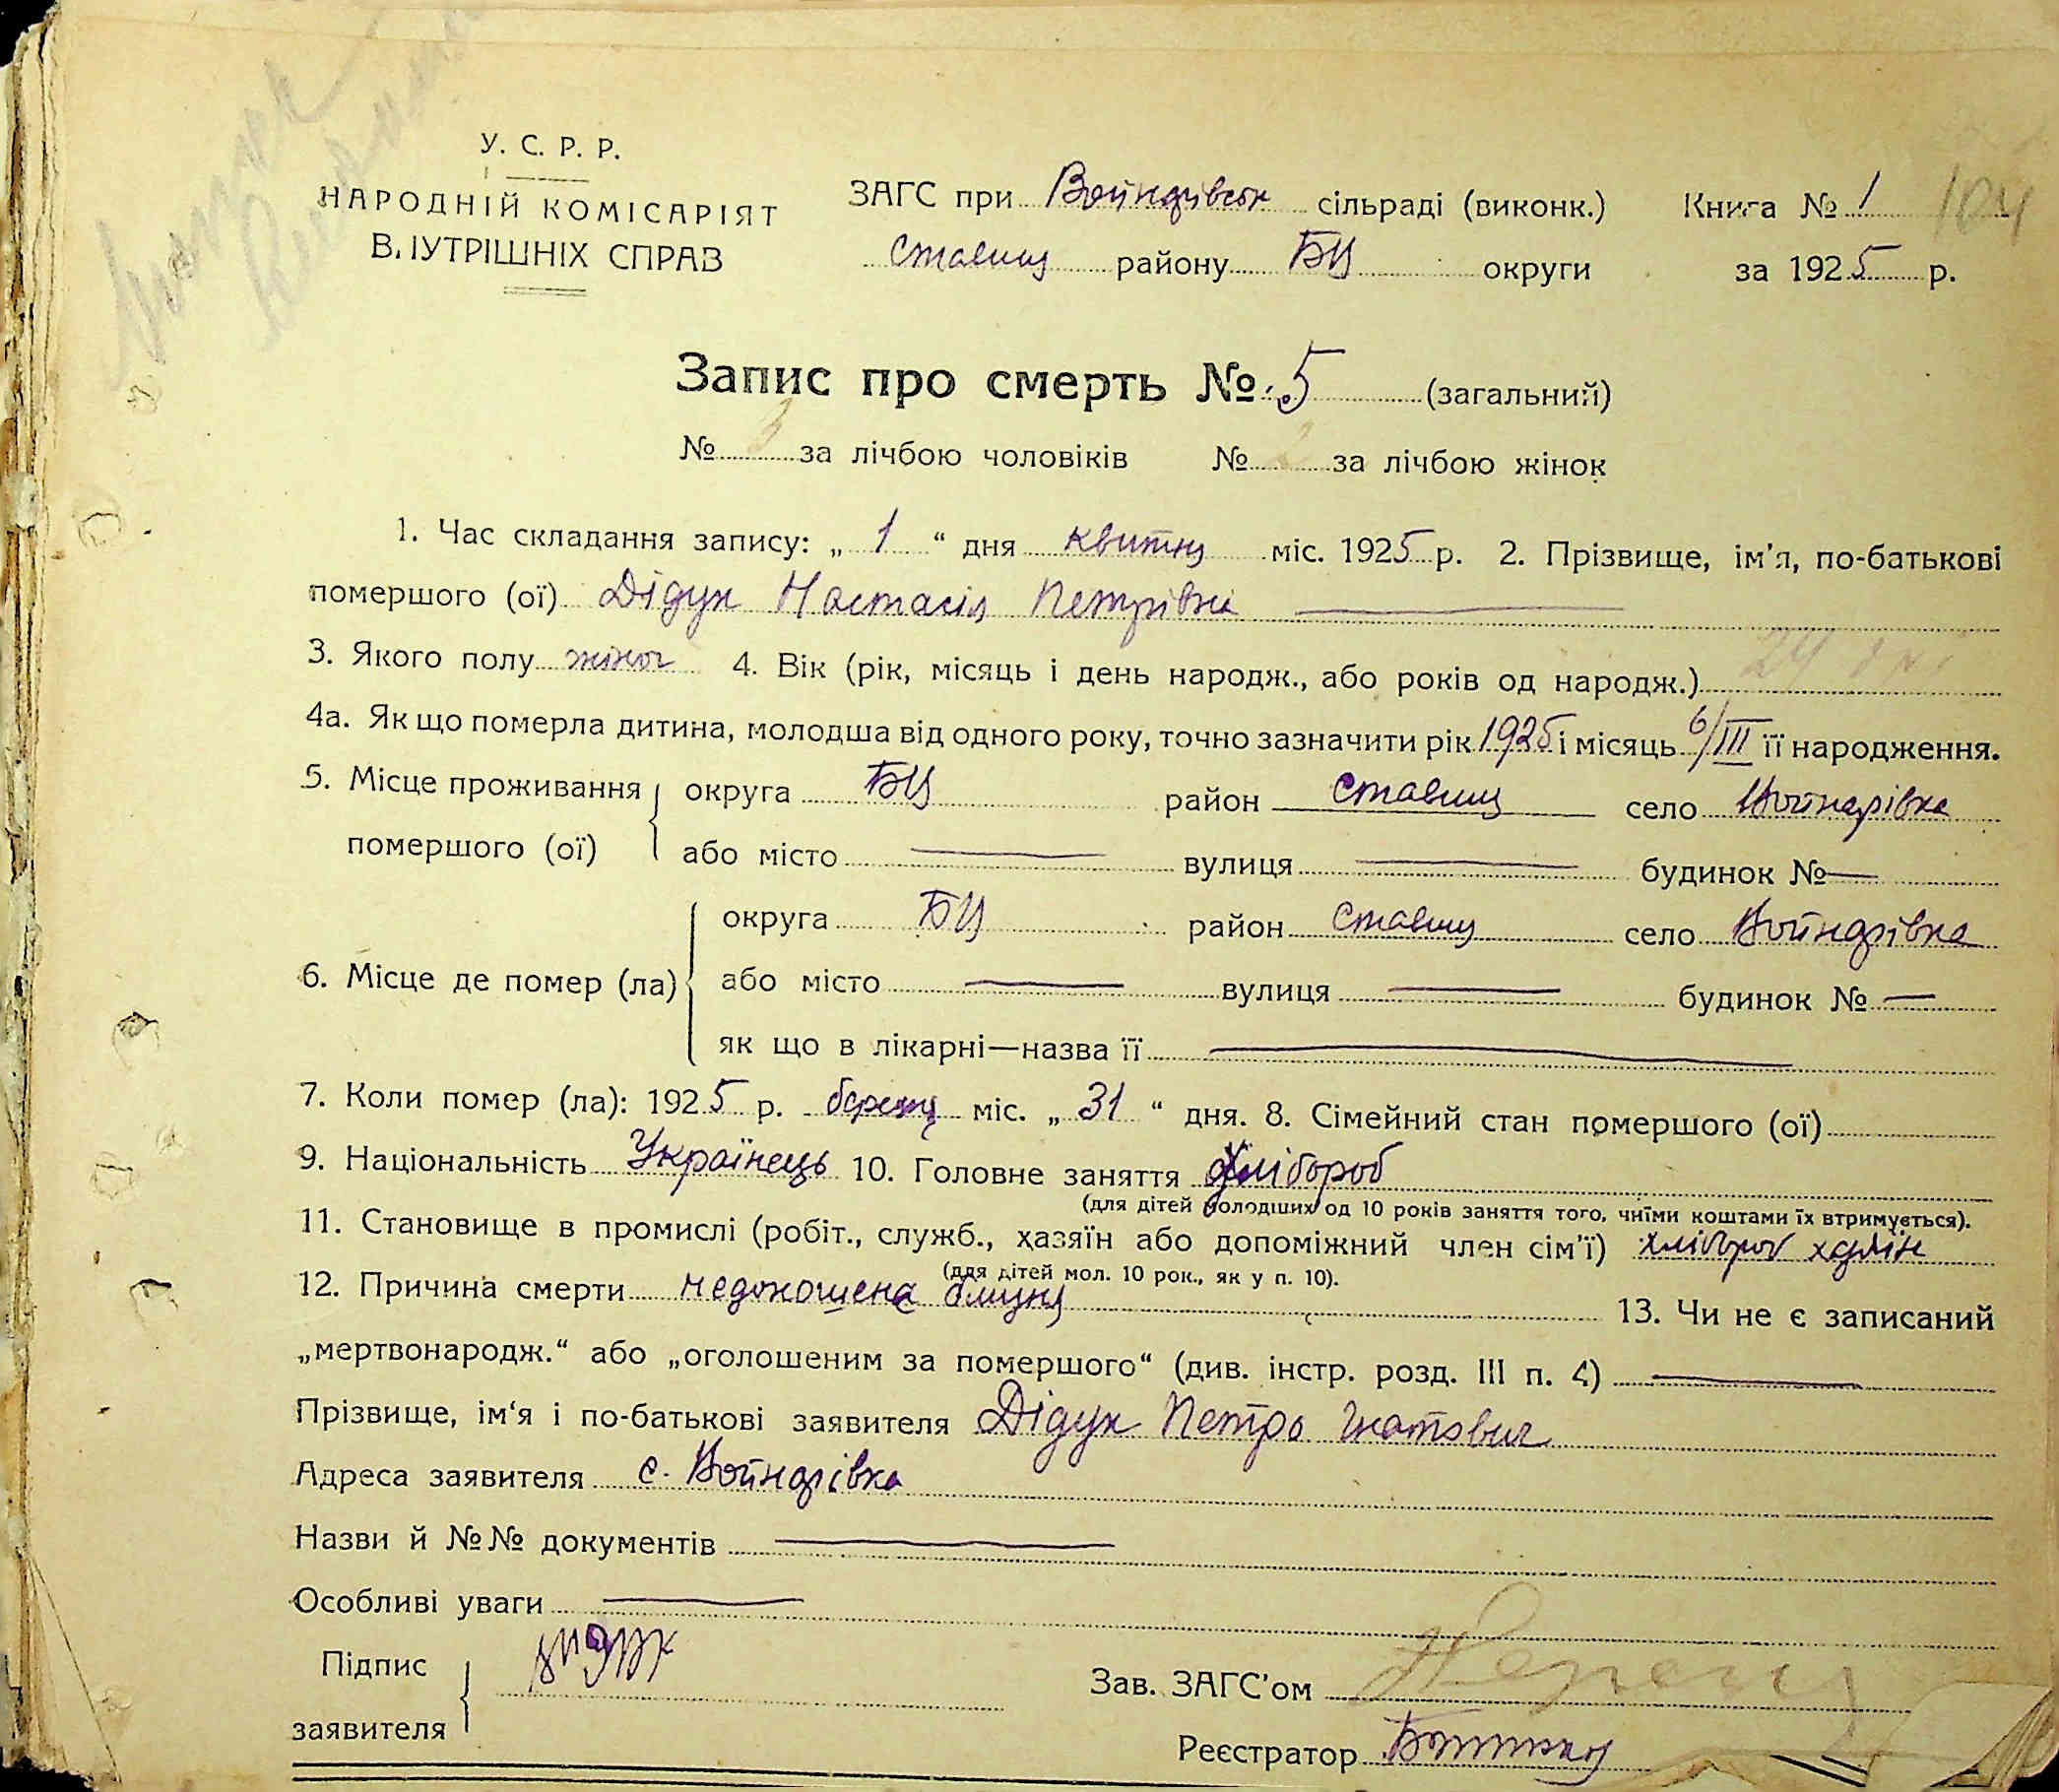 У. С. Р. Р.
НАРОДНІЙ КОМІСАРІЯТ
ВНУТРІШНІХ СПРАВ
ЗАГС при Войнарівськ сільраді (виконк.) Книга № 1 104
Ставищ району БЦ округи за 1925 р.
Запис про смерть № 5 (загальний)
№ 3 за лічбою чоловіків № за лічбою жінок
1. Час складання запису: „ 1 “ дня квітня міс. 1925 р. 2. Прізвище, ім’я, по-батькові
помершого (ої) Дідух Настасія Петрівна
3. Якого полу жіноч 4. Вік (рік, місяць і день народж., або років од народж.) 24 дні
4а. Як що померла дитина, молодша від одного року, точно зазначити рік 1925 і місяць 6/III її народження.
5. Місце проживання помершого (ої) округа БЦ район Ставищ село Войнарівка
або місто вулиця будинок №
6. Місце де помер (ла) округа БЦ район Ставищ село Войнарівка
або місто вулиця будинок №
як що в лікарні—назва її
7. Коли помер (ла): 1925 р. березня міс. „ 31 “ дня. 8. Сімейний стан помершого (ої)
9. Національність Українець 10. Головне заняття Хлібороб
(для дітей молодших од 10 років заняття того, чиїми коштами їх втримується).
11. Становище в промислі (робіт., служб., хазяїн або допоміжний член сім’ї) хлібороб хазяїн
(для дітей мол. 10 рок., як у п. 10).
12. Причина смерти недоношена 13. Чи не є записаний
„мертвонародж.“ або „оголошеним за помершого“ (див. інстр. розд. III п. 4)
Прізвище, ім‘я і по-батькові заявителя Дідух Петро Гнатович
Адреса заявителя с. Войнарівка
Назви й №№ документів
Особливі уваги
Підпис заявителя
Зав. ЗАГС’ом
Реєстратор